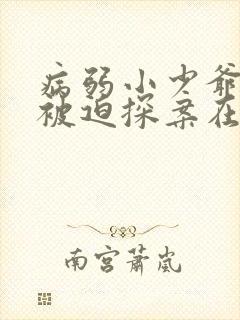 病弱小少爷
被迫探案在
南宫萧岚